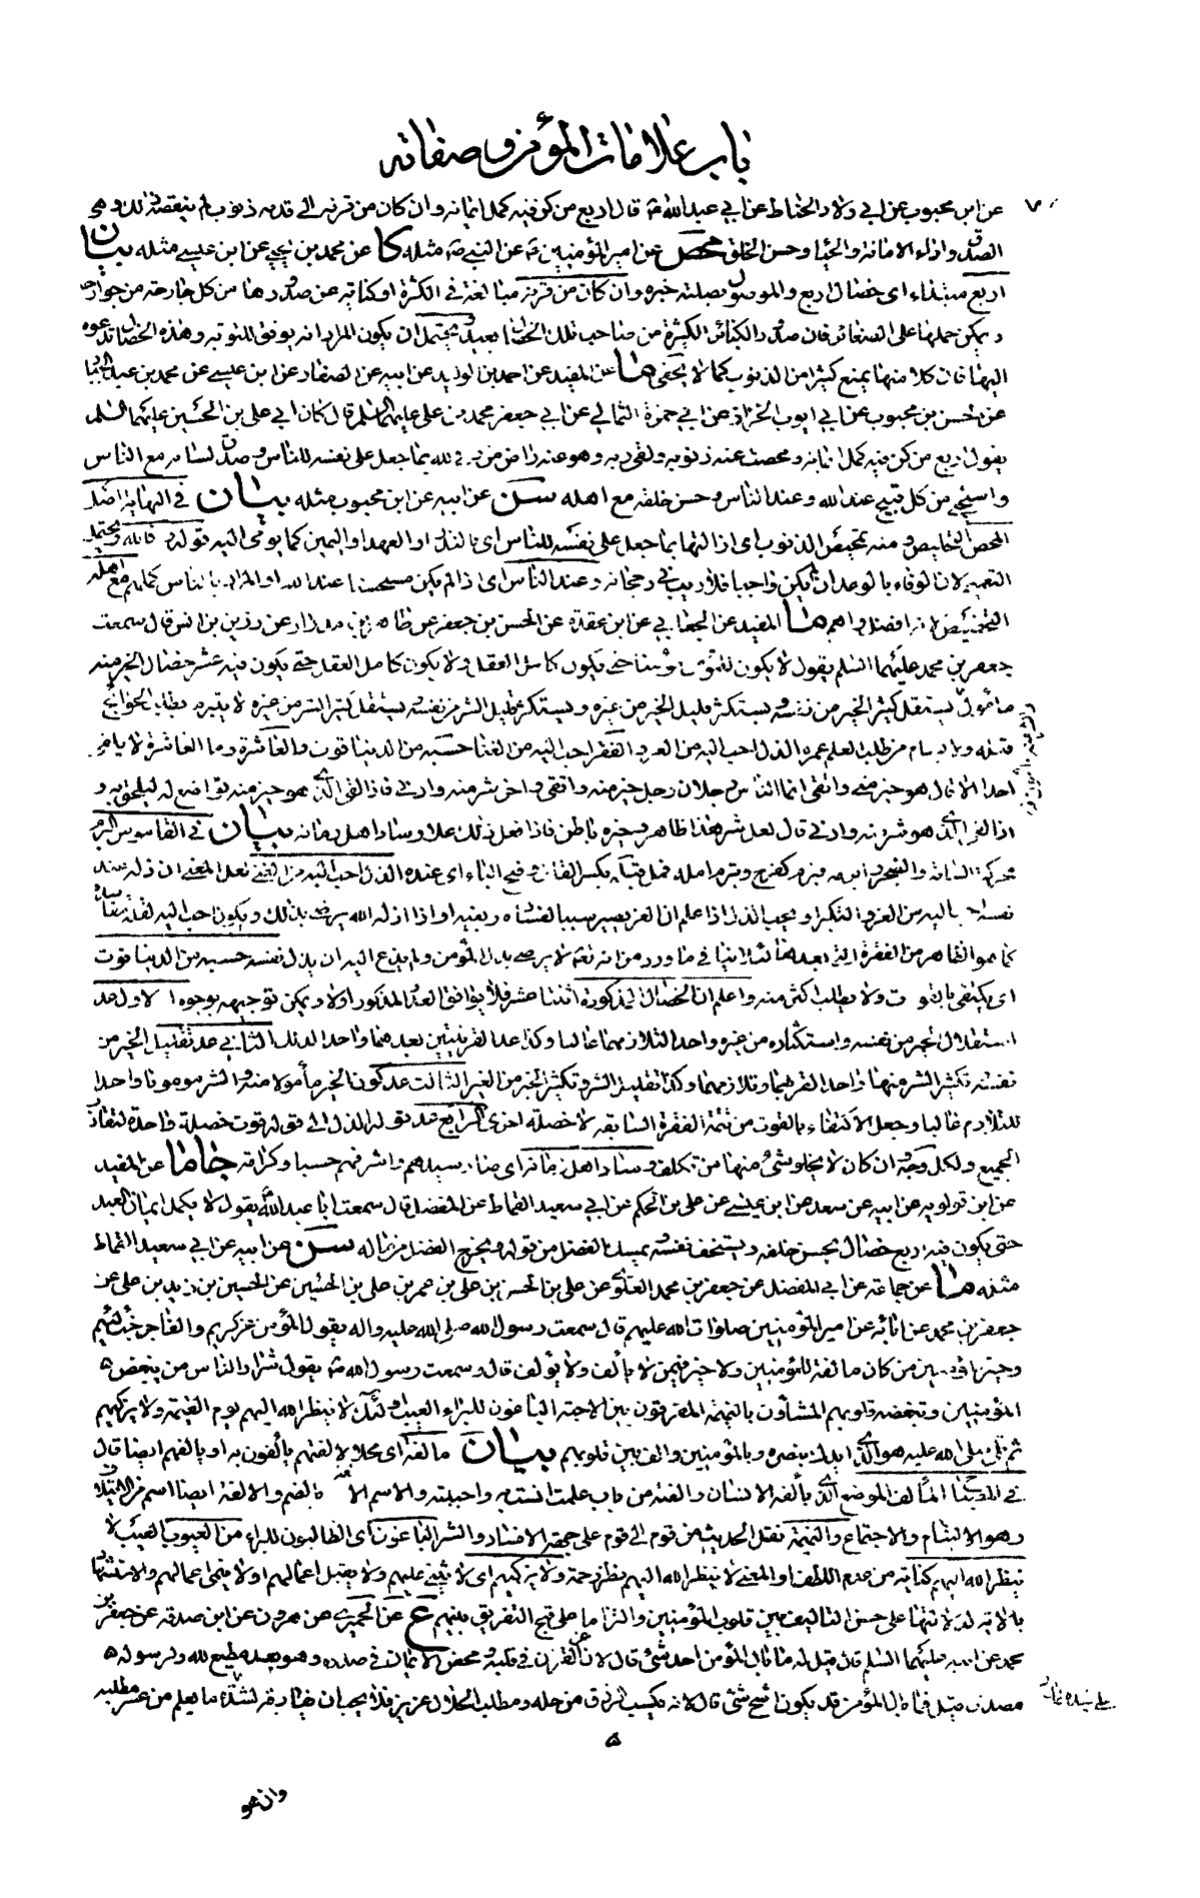 باب علامات المؤمن و صفاته
عن ابن محبوب عن ابي ولاد الحناط عن ابي عبد الله ع قال اربع من كن فيه كمل ايمانه وان كان من قرنه الى قدمه ذنوب لم ينقصه ذلك وهى
الصدق واداء الامانة والحياء وحسن الخلق محص عن امير المؤمنين ع عن النبي ص مثله كا عن محمد بن يحيى عن ابن عيسى مثله بيان
اربع مبتداء اى خصال اربع والموصول بصلته خبره وان كان من قرنه مبالغة في الكثرة او كناية عن صدورها من كل جارحة من جوارحه
ويمكن حملها على الصغائر فان صدور الكبائر الكثيرة من صاحب تلك الخصال بعيد ويحتمل ان يكون المراد انه يوفق للتوبة وهذه الخصال تدعوه
اليها فان كلا منها يمنع كثيرا من الذنوب كما لا يخفى ما عن المفيد عن احمد بن الوليد عن ابيه عن الصفار عن ابن عيسى عن محمد بن عبد الجبار
عن الحسن بن محبوب عن ابي ايوب الخزاز عن ابي حمزة الثمالي عن ابي جعفر محمد بن علي عليهما السلم قال كان ابي علي بن الحسين عليهما السلم
يقول اربع من كن فيه كمل ايمانه ومحصت عنه ذنوبه ولقي ربه وهو عنه راض من وفى لله بما جعل على نفسه للناس وصدق لسانه مع الناس
واستحيى من كل قبيح عند الله وعند الناس وحسن خلقه مع اهله سن عن ابيه عن ابن محبوب مثله بيان في النهاية اصل
المحص التخليص ومنه تمحيص الذنوب اى ازالتها بما جعل على نفسه للناس اى بالنذر او العهد او اليمين كما يومى اليه قوله وفى لله ويحتمل
التعميم لان الوفاء بالوعد ان لم يكن واجبا فلا ريب في رجحانه وعند الناس اى اذا لم يكن مستحسنا عند الله او المراد بالناس كملهم مع اهله
التخصيص لانه افضل واهم ما المفيد عن الجعابي عن ابن عقدة عن الحسن بن جعفر عن طاهر بن عن رزين بن انس قال سمعت
جعفر بن محمد عليهما السلم يقول لا يكون المؤمن مؤمنا حتى يكون كامل العقل ولا يكون كامل العقل حتى يكون فيه عشر خصال الخير منه
مامول يستقل كثير الخير من نفسه ويستكثر قليل الخير من غيره ويستكثر قليل الشر من نفسه ويستقل كثير الشر من غيره لا يتبرم بطلب الحوائج
قبله ولا يسام من طلب العلم عمره الذل احب اليه من العز والفقر احب اليه من الغنى حسبه من الدنيا قوت والعاشرة وما العاشرة لا يلقى
احدا الا قال هو خير مني واتقى انما الناس رجلان رجل خير منه واتقى واخر شر منه وادنى فاذا لقى الذى هو خير منه تواضع له ليلحق به و
اذا لقى الذى هو شر منه وادنى قال لعل شر هذا ظاهر وخيره باطن فاذا فعل ذلك علا وساد اهل زمانه بيان في القاموس البرم
محركة السامة والضجر وابرمه فبرم كفرح وتبرم امله فمل قبله بكسر القاف وفتح الباء اى عنده الذل احب اليه من العز لعل المعنى ان ذله عند
نفسه احب اليه من العز والتكبر او يحب الذل اذا علم ان العز يصير سببا لفساده وبغيه او اذا اذله الله يرضى بذلك ويكون احب اليه لقلة مفاسده
كما هو الظاهر من الفقرة التي بعدها فلا ينافي ما ورد من انه تعالى لا يرضى بذل المؤمن ولم يدع اليه ان يذل نفسه حسبه من الدنيا قوت
اى يكتفي بالقوت ولا يطلب اكثر منه واعلم ان الخصال المذكورة اثنتا عشر فلا يوافق العدد المذكور اولا ويمكن توجيهه بوجوه الاول عد
استقلال الخير من نفسه واستكثاره من غيره واحدا لتلازمهما غالبا وكذا عد القرينتين بعدهما واحدا لذلك الثاني عد تقليل الخير من
نفسه وتكثير الشر منها واحدا لقربهما وتلازمهما وكذا تقليل الشر وتكثير الخير من الغير الثالث عد كون الخير مأمولا منه والشر مومونا واحدا
للتلازم غالبا وجعل الاكتفاء بالقوت من تتمة الفقرة السابقة لا خصلة اخرى الرابع عد قوله الذل الى قوله قوت خصلة واحدة لتقارب
الجميع ولكل وجه وان كان لا يخلو شئ منها من تكلف وساد اهل زمانه اى صار سيدهم واشرفهم حسبا وكرامة جاما عن المفيد
عن ابن قولويه عن ابيه عن سعد عن ابن عيسى عن علي بن الحكم عن ابي سعيد القماط عن المفضل قال سمعت ابا عبد الله ع يقول لا يكمل ايمان العبد
حتى يكون فيه اربع خصال يحسن خلقه ويستخف نفسه ويمسك الفضل من قوله ويخرج الفضل من ماله سن عن ابيه عن ابي سعيد القماط
مثله ما عن جماعة عن ابي المفضل عن جعفر بن محمد العلوى عن علي بن الحسن بن علي بن عمر بن علي بن الحسين عن الحسين بن زيد بن علي عن
جعفر بن محمد عن ابائه عن امير المؤمنين صلوات الله عليهم قال سمعت رسول الله صلى الله عليه واله يقول المؤمن غر كريم والفاجر خب لئيم
وخير المؤمنين من كان مالفة للمؤمنين ولا خير فيمن لا يألف ولا يؤلف قال وسمعت رسول الله ص يقول شرار الناس من يبغض
المؤمنين وتبغضه قلوبهم المشاؤن بالنميمة المفرقون بين الاحبة الباغون للبراء العيب اولئك لا ينظر الله اليهم يوم القيمة ولا يزكيهم
ثم تلا صلى الله عليه هو الذى ايدك بنصره وبالمؤمنين والف بين قلوبهم بيان مالفة اى محلا لالفتهم يألفون به او يالفهم ايضا قال
في المألف الموضع الذى يألفه الانسان والفته من باب علمت انست به واحببته والاسم الالفة بالضم والالفة ايضا اسم من الايتلاف
وهو الالتيام والاجتماع والنميمة نقل الحديث من قوم الى قوم على جهة الافساد والشر الباغون اى الطالبون للبراء من العيوب العيب لا
ينظر الله اليهم كناية من عدم اللطف او المعنى لا ينظر الله اليهم نظر رحمة ولا يزكيهم اى لا يثنى عليهم ولا يقبل اعمالهم او لا ينمى اعمالهم والاستشهاد
بالاية لدلالتها على حسن التاليف بين قلوب المؤمنين والتزاما على قبح التفريق بينهم ع عن الحميرى عن هرون عن ابن صدقة عن جعفر بن
محمد عن ابيه عليهما السلم قال قيل له ما بال المؤمن احد شئ قال لان عز القران في قلبه ومحض الايمان في صدره وهو بعد مطيع لله ولرسوله
مصدق قيل فما بال المؤمن قد يكون اشح شئ قال لانه يكسب الرزق من حله ومطلب الحلال عزيز فلا يحب ان يفارقه لشدة ما يعلم من عسر مطلبه
وان هو